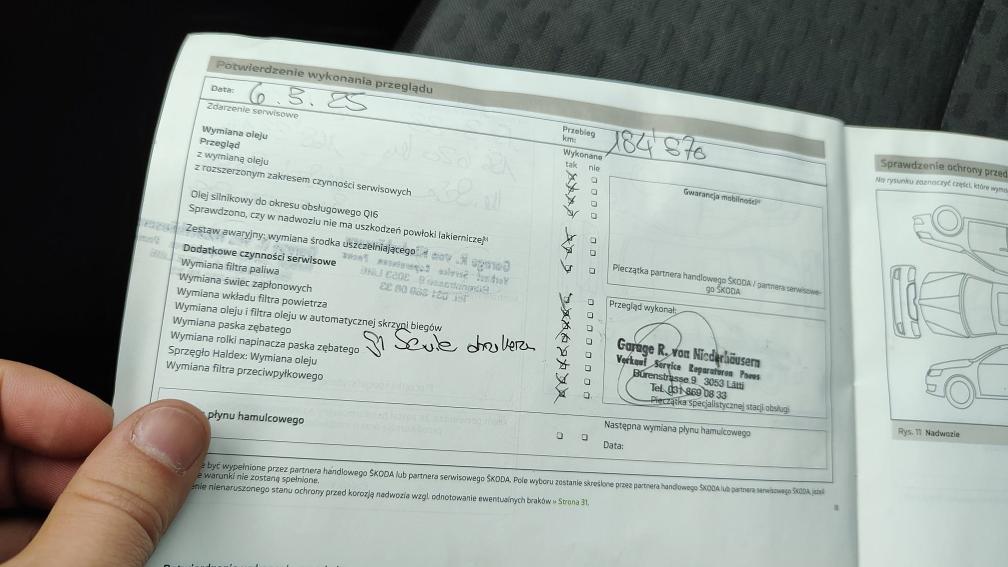 Potwierdzenie wykonania przeglądu
Data: 6. 3. 25
Przebieg km: 184'870
Zdarzenie serwisowe
Wykonane
tak nie
Wymiana oleju
Przegląd
z wymianą oleju
z rozszerzonym zakresem czynności serwisowych
Olej silnikowy do okresu obsługowego QI6
Sprawdzono, czy w nadwoziu nie ma uszkodzeń powłoki lakierniczej
Zestaw awaryjny: wymiana środka uszczelniającego
Dodatkowe czynności serwisowe
Wymiana filtra paliwa
Wymiana świec zapłonowych
Wymiana wkładu filtra powietrza
Wymiana oleju i filtra oleju w automatycznej skrzyni biegów
Wymiana paska zębatego
Wymiana rolki napinacza paska zębatego
Sprzęgło Haldex: Wymiana oleju
Wymiana filtra przeciwpyłkowego
płynu hamulcowego
Gwarancja mobilności
Pieczątka partnera handlowego ŠKODA / partnera serwisowe-
go ŠKODA
Przegląd wykonał:
Garage R. von Niederhäusern
Verkauf Service Reparaturen Pneus
Bürenstrasse 9 3053 Lätti
Tel. 031 869 08 33
Pieczątka specjalistycznej stacji obsługi
Następna wymiana płynu hamulcowego
Data:
być wypełnione przez partnera handlowego ŠKODA lub partnera serwisowego ŠKODA. Pole wyboru zostanie skreślone przez partnera handlowego ŠKODA lub partnera serwisowego ŠKODA, jeżeli
warunki nie zostaną spełnione.
nienaruszonego stanu ochrony przed korozją nadwozia wzgl. odnotowanie ewentualnych braków » Strona 31.
8
Sprawdzenie ochrony przed
Na rysunku zaznaczyć części, które
Rys. 11 Nadwozie